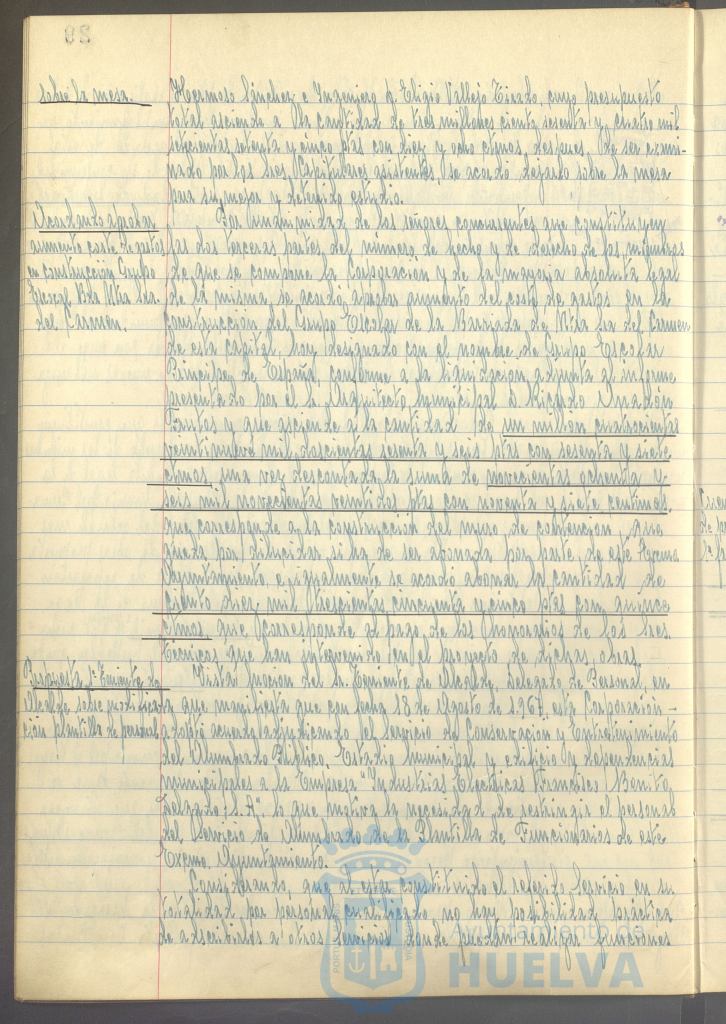 sobre la mesa.
Hermoso Sánchez e Ingeniero D. Eligio Vallejo Tirado, cuyo presupuesto
total asciende a la cantidad de tres millones ciento sesenta y cuatro mil
setecientas setenta y cinco ptas con diez y ocho ctmos, despues de ser exami-
nado por los Sres Capitulares asistentes, se acordó dejarlo sobre la mesa
para su mejor y detenido estudio.
Acordando aprobar
aumento coste de gastos
en construcción Grupo
Escolar Bda Ntra Sra.
del Carmen.
Por unanimidad de los señores concurrentes que constituyen
las dos terceras partes del número de hecho y de derecho de los miembros
de que se compone la Corporación y de la mayoria absoluta legal
de la misma, se acordó aprobar aumento del costo de gastos en la
construcción del Grupo Escolar de la Barriada de Ntra Sra del Carmen
de esta capital, hoy designado con el nombre de Grupo Escolar
Principe de España, conforme a la liquidación adjunta al informe
presentado por el Sr. Arquitecto Municipal D. Ricardo Anadón
Frutos y que asciende a la cantidad de un millon cuatrocientas
veintinueve mil doscientas sesenta y seis ptas con sesenta y siete
ctmos una vez descontada la suma de novecientas ochenta y
seis mil novecientas veintidos ptas con noventa y siete centimos,
que corresponde a la construcción del muro de contención, que
queda por dilucidar si ha de ser abonada por parte de este Excmo
Ayuntamiento e igualmente se acordó abonar la cantidad de
ciento diez mil trescientas cincuenta y cinco ptas con quince
ctmos que corresponde al pago de los honorarios de los tres
tecnicos que han intervenido en el proyecto de dichas obras.
Propuesta Sr. Teniente de
Alcalde sobre modifica-
ción plantilla de personal
Vista mocion del Sr. Teniente de Alcalde, Delegado de Personal, en
la que manifiesta que con fecha 18 de Agosto de 1967, esta Corporación
adoptó acuerdo adjudicando el Servicio de Conservación y Entretenimiento
del Alumbrado Público, Estadio Municipal y edificio y dependencias
municipales a la Empresa "Industrias Electricas Francisco Benito
Delgado, S.A", lo que motiva la necesidad de restringir el personal
del Servicio de Alumbrado de la Plantilla de Funcionarios de este
Excmo. Ayuntamiento.
Considerando, que al estar constituido el referido Servicio en su
totalidad por personal cualificado, no hay posibilidad práctica
de adscribirlos a otros Servicios donde puedan realizar funciones
Ayuntamiento de
HUELVA